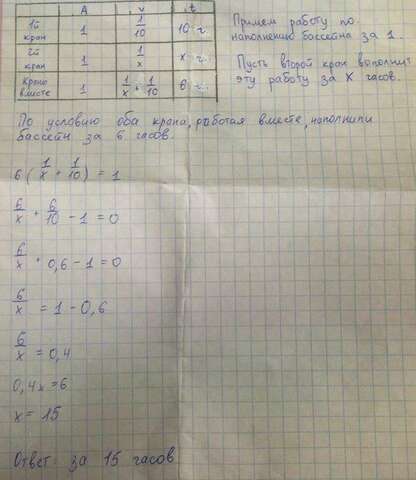 A v t
1й кран 1 1/10 10 г.
2й кран 1 1/x x г.
Краны вместе 1 1/x + 1/10 6 г.
Примем работу по
наполнению бассейна за 1.
Пусть второй кран выполнит
эту работу за X часов.
По условию оба крана, работая вместе, наполнили
бассейн за 6 часов.
6 (1/x + 1/10) = 1
6/x + 6/10 - 1 = 0
6/x + 0,6 - 1 = 0
6/x = 1 - 0,6
6/x = 0,4
0,4x = 6
x = 15
Ответ: за 15 часов